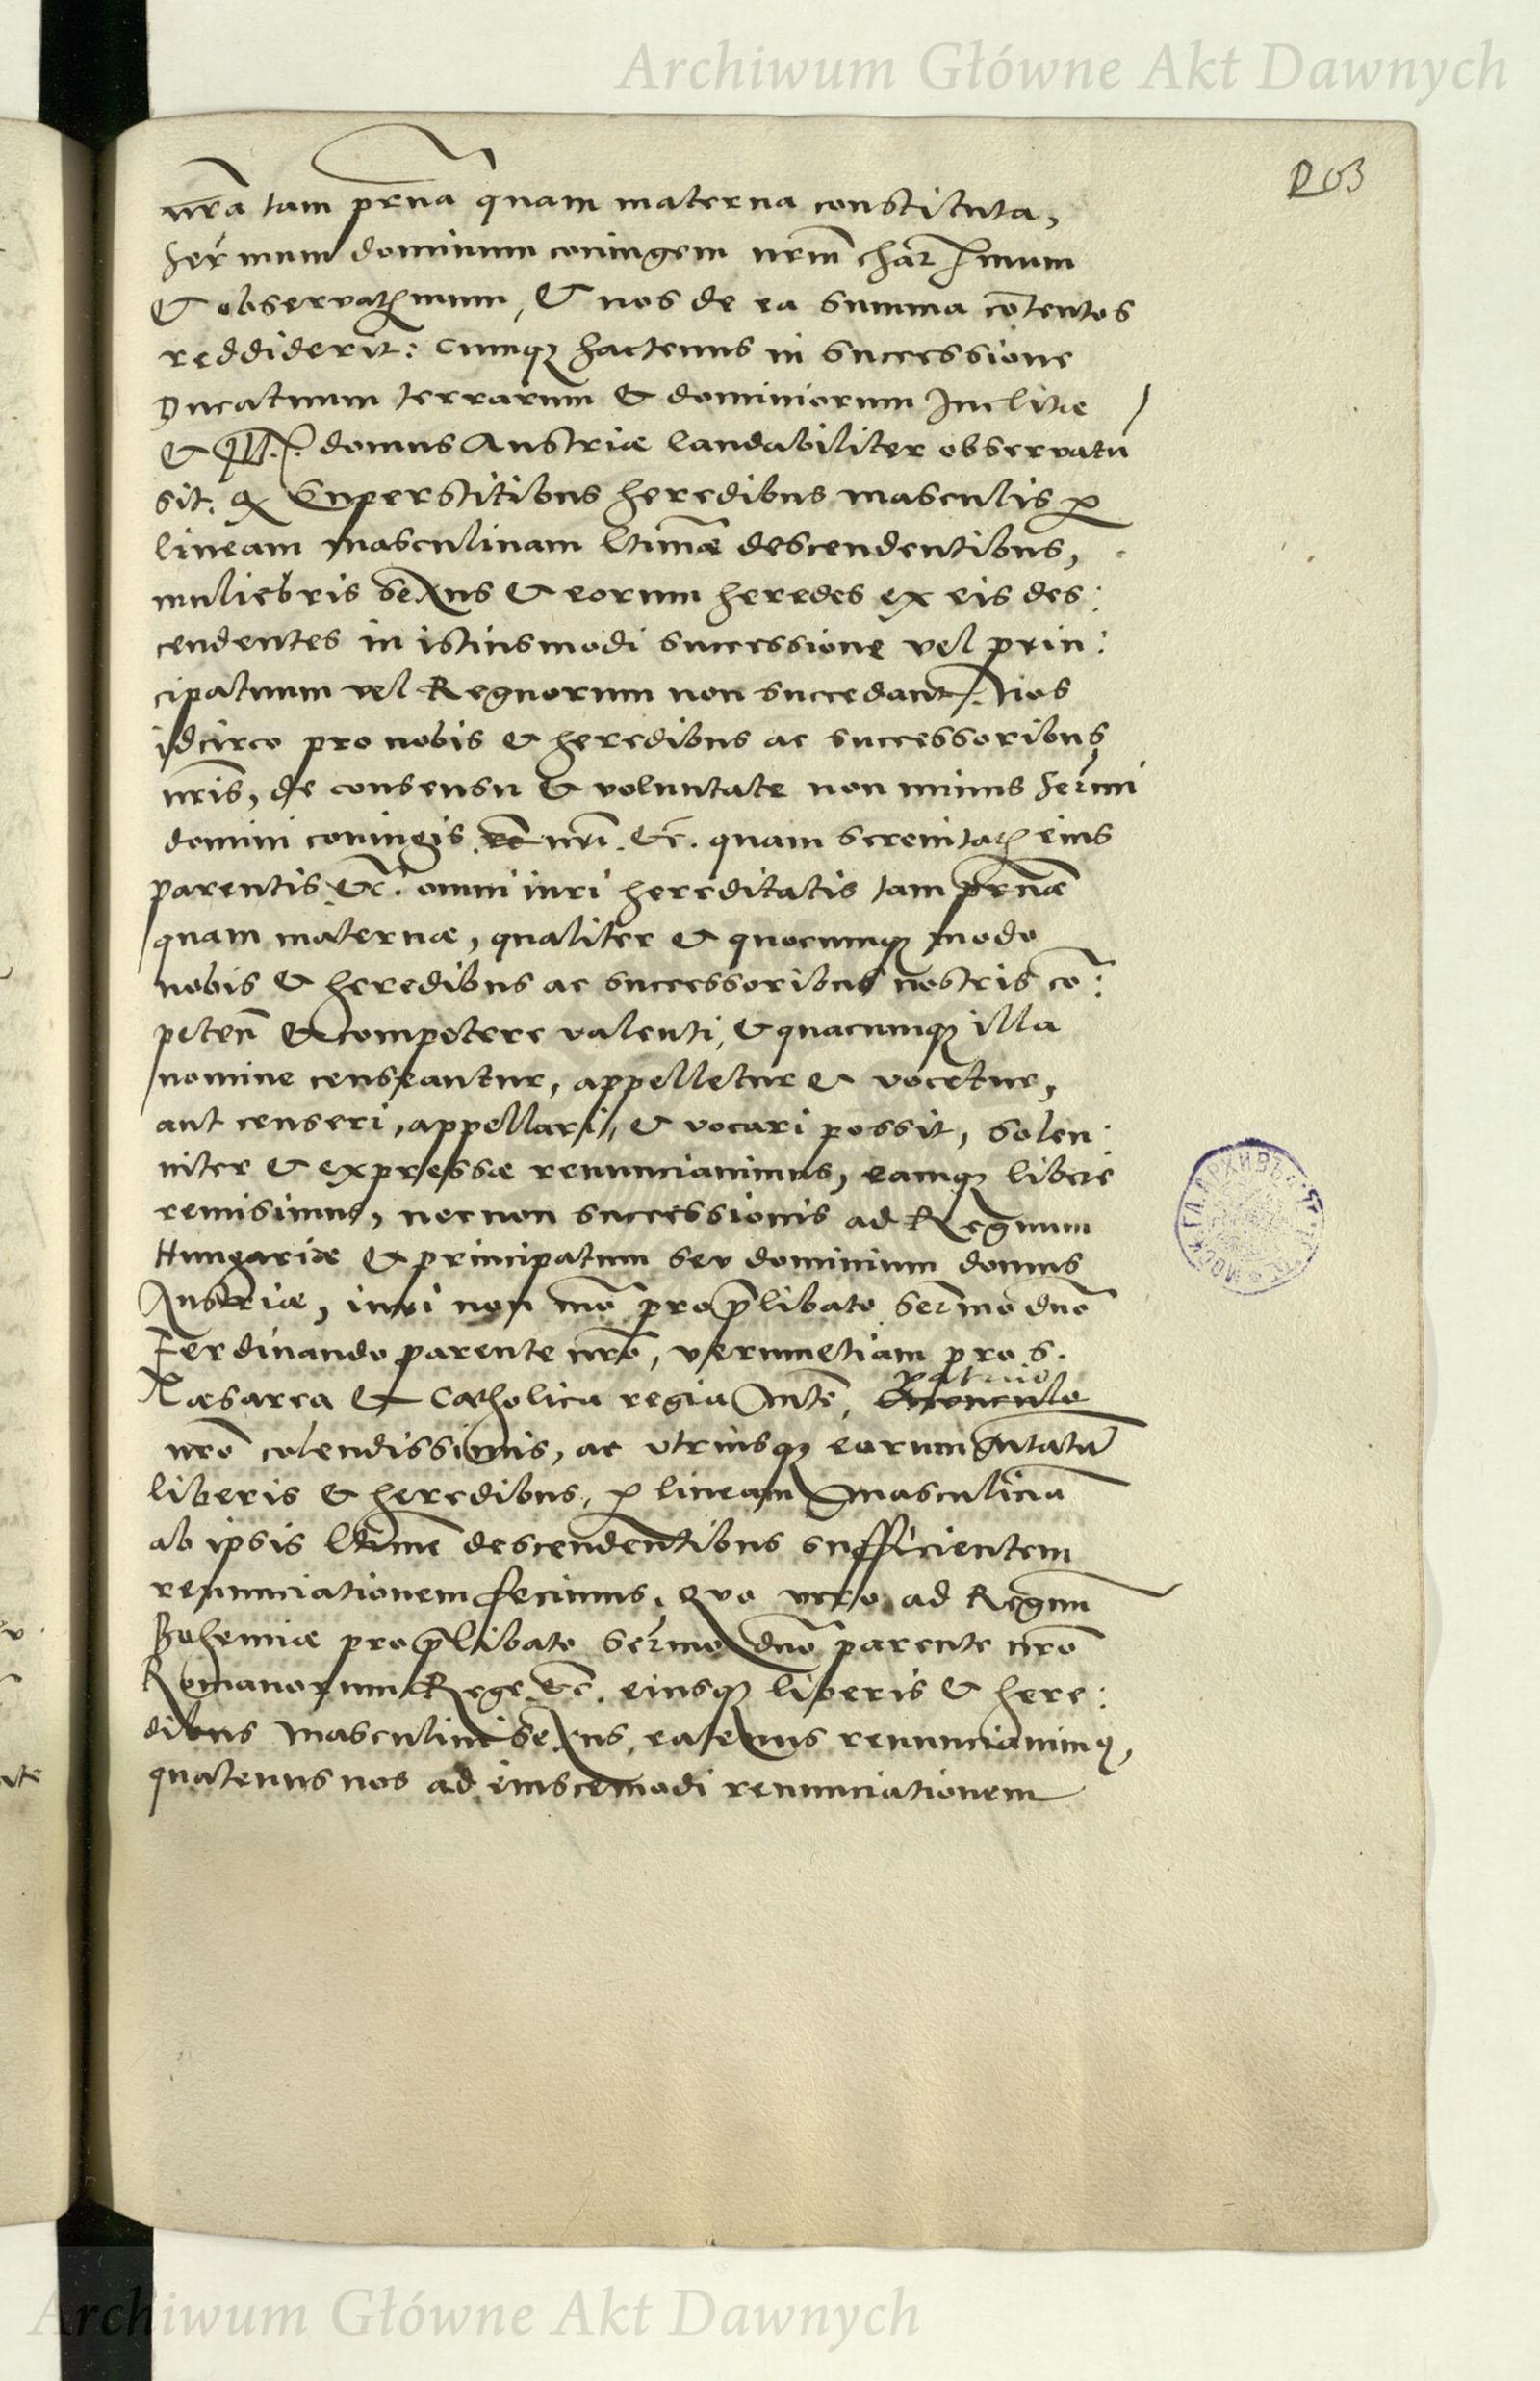 Archiwum Główne Akt Dawnych
203
nr̃a tam pr̃na quam materna constituta,
Sermum dominum coniugem nrm̃ char mum
& observatmum, & nos de ea summa cõtentos
reddiderit: Cumqꝫ hactenus in successione
Ducatuum terrarum & dominiorum Inclitæ
& Ill. domus Austriæ laudabiliter observatũ
sit: ꝙ Superstitibus heredibus masculis ꝑ
lineam masculinam ltimæ descendentibus,
muliebris sexus & eorum heredes ex eis des:
cendentes in istiusmodi successione vel prin:
cipatuum vel Regnorum non succedant. Nos
idcirco pro nobis & heredibus ac successoribus
nr̃is, de consensu & voluntate non minus Sermi
domini coniugis nr̃i. &c̃. quam serenitatis eius
parentis &c̃. omni iuri hereditatis tam pr̃næ
quam maternæ, qualiter & quocunqꝫ modo
nobis & heredibus ac successoribus nostris cõ:
peteñ & competere valenti, & quacunqꝫ illa
nomine censeantur, appelletur & vocetur,
aut censeri, appellari, & vocari possit, solen:
niter & expressæ renunciavimus, eamqꝫ libere
remisimus, necnon successionis ad Regnum
Hungariæ & principatum seu dominium domus
Austriæ, iuri non mõ pro p̃libato Sermo dño
Ferdinando parente nr̃o, verumetiam pro S.
patruo
Cæsarea & Catholica regia Mte, Avunculo
nr̃o colendissimis, ac utriusqꝫ eorum Mtatũ
liberis & heredibus, ꝑ lineam masculinã
ab ipsis ltime descendentibus sufficientem
renunciationem fecimus. Quo vero ad Regnũ
Bohemiæ pro p̃libato Sermo dño parente nr̃o
Romanorum Rege &c̃. eiusqꝫ liberis & here:
dibus masculini sexus, eatenus renunciavimꝰ,
quatenus nos ad eiuscemodi renunciationem
Archiwum Główne Akt Dawnych